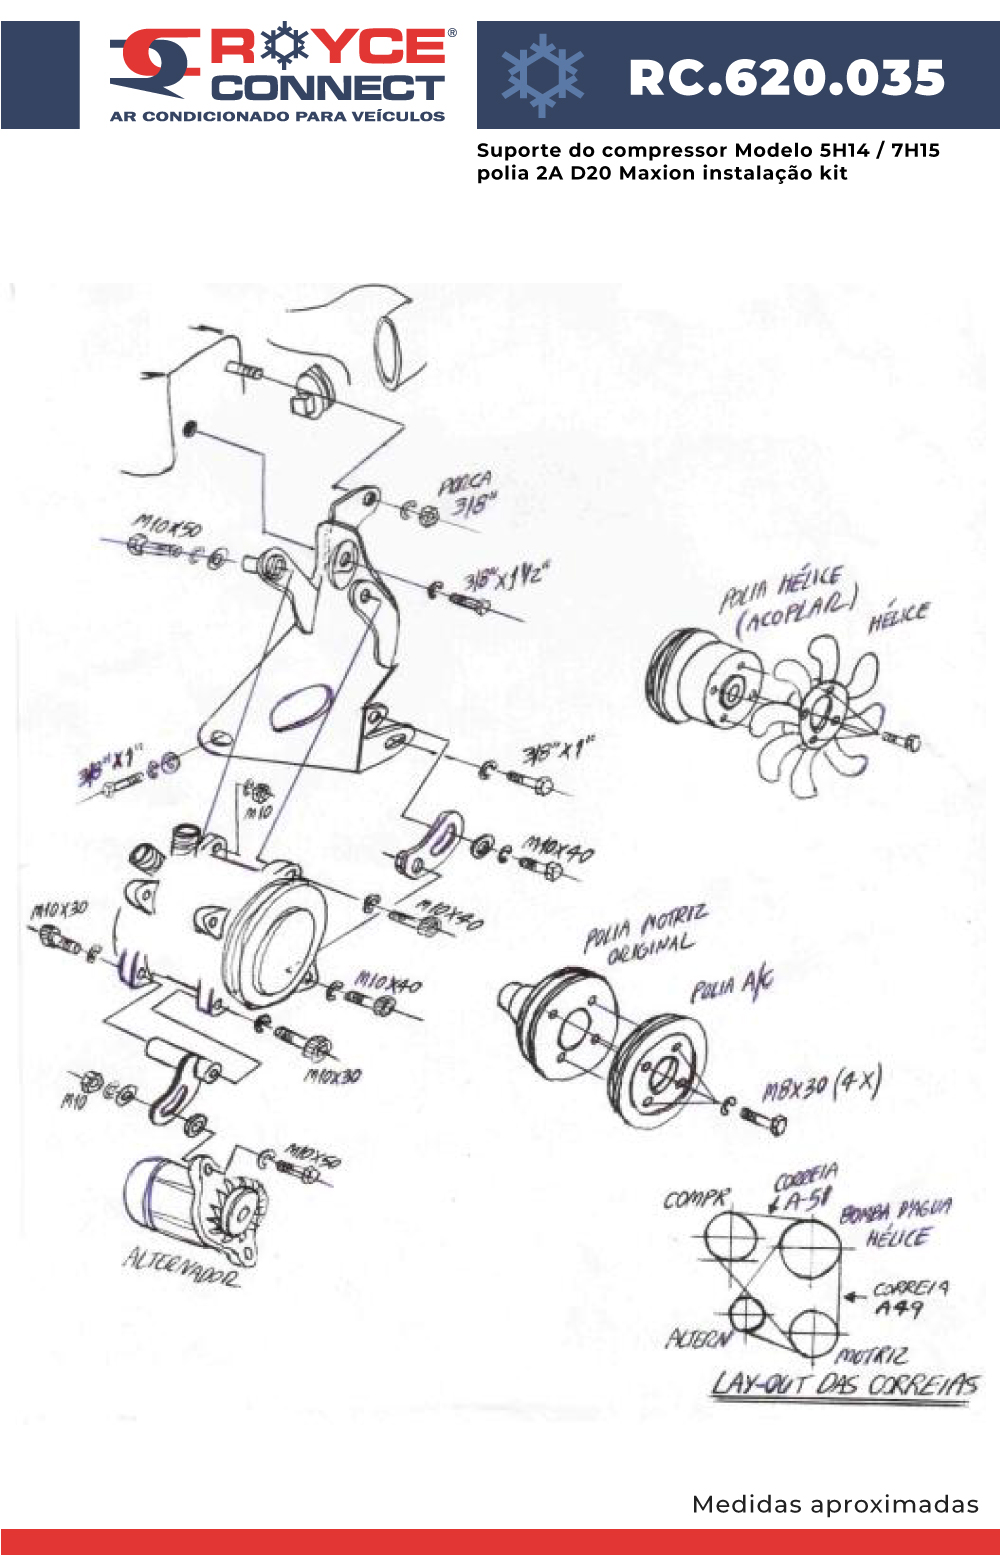 ROYCE®
CONNECT
AR CONDICIONADO PARA VEÍCULOS
RC.620.035
Suporte do compressor Modelo 5H14 / 7H15
polia 2A D20 Maxion instalação kit
PORCA
3/8"
M10X50
3/8" X 1 1/2"
POLIA HÉLICE
(ACOPLAR)
HÉLICE
3/8" X 1"
3/8" X 1"
M10
M10X40
M10X30
M10X40
M10X40
POLIA MOTRIZ
ORIGINAL
POLIA A/C
M10X30
M10
M8X30 (4X)
M10X50
ALTERNADOR
COMPR
CORREIA
A-51
BOMBA D'AGUA
HÉLICE
CORREIA
A49
ALTERN
MOTRIZ
LAY-OUT DAS CORREIAS
Medidas aproximadas